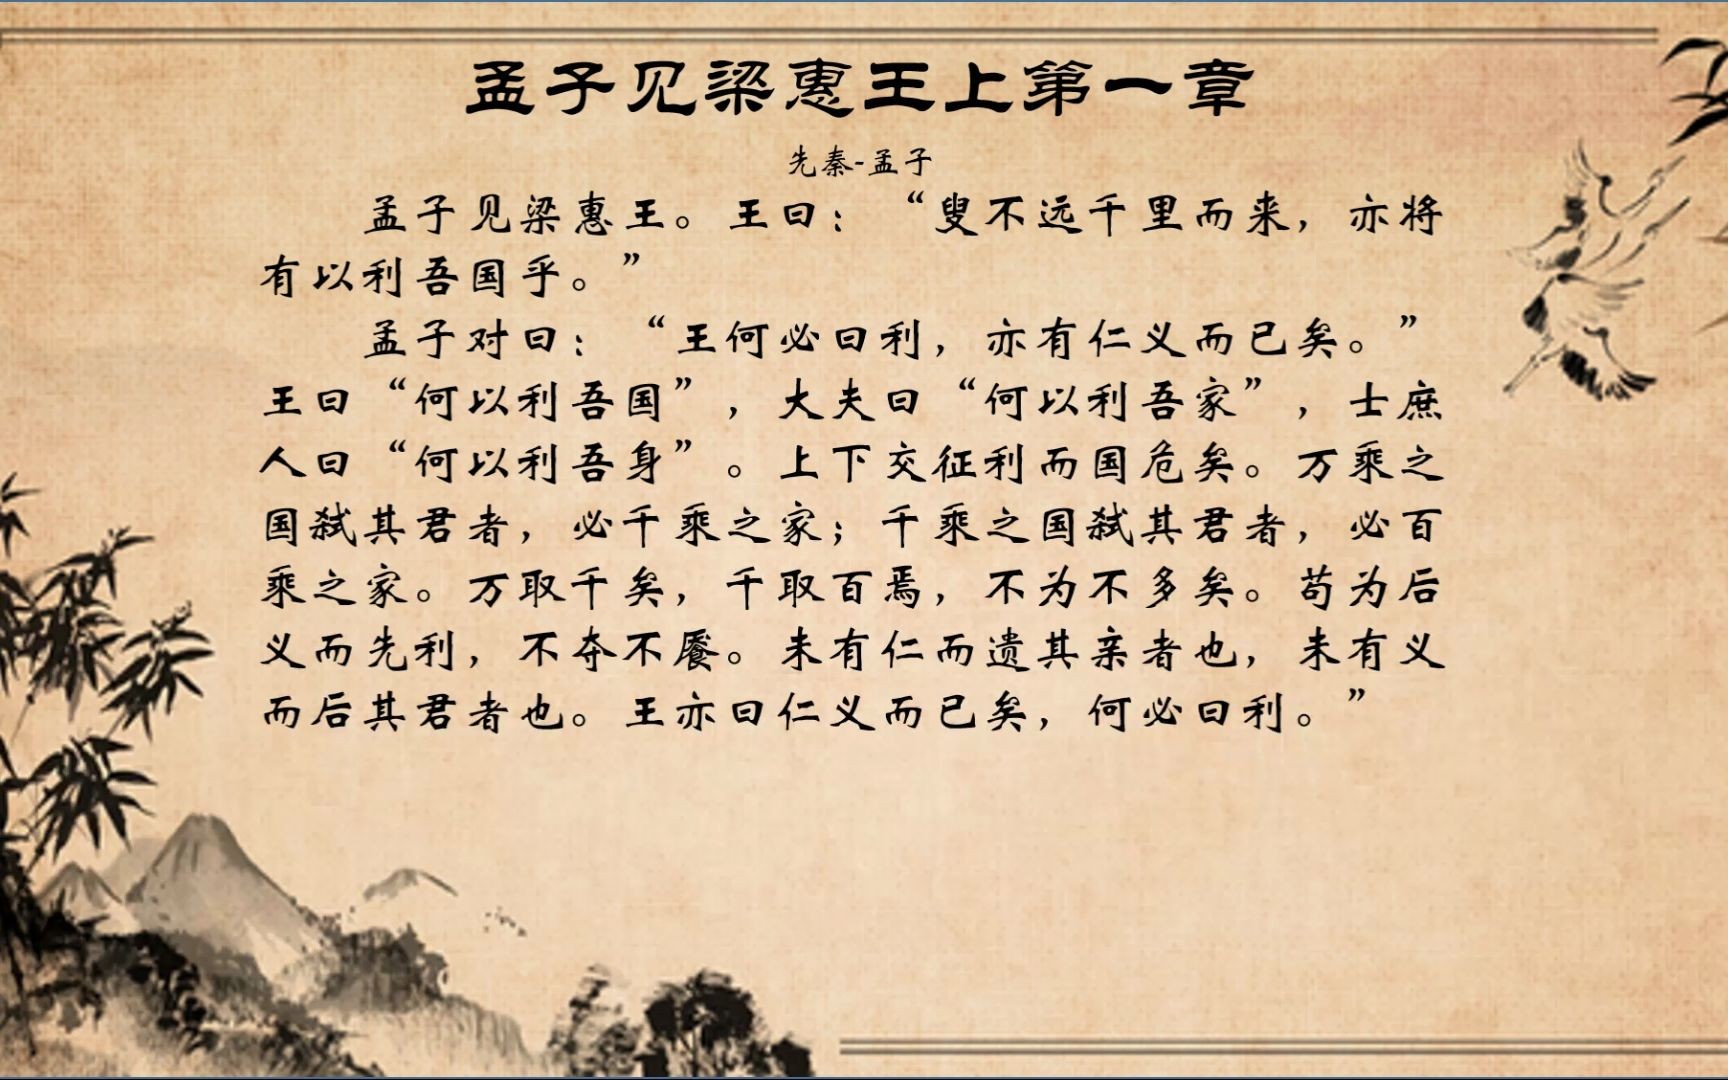 孟子见梁惠王上第一章
先秦-孟子
孟子见梁惠王。王曰：“叟不远千里而来，亦将
有以利吾国乎。”
孟子对曰：“王何必曰利，亦有仁义而已矣。”
王曰“何以利吾国”，大夫曰“何以利吾家”，士庶
人曰“何以利吾身”。上下交征利而国危矣。万乘之
国弑其君者，必千乘之家；千乘之国弑其君者，必百
乘之家。万取千矣，千取百焉，不为不多矣。苟为后
义而先利，不夺不餍。未有仁而遗其亲者也，未有义
而后其君者也。王亦曰仁义而已矣，何必曰利。”